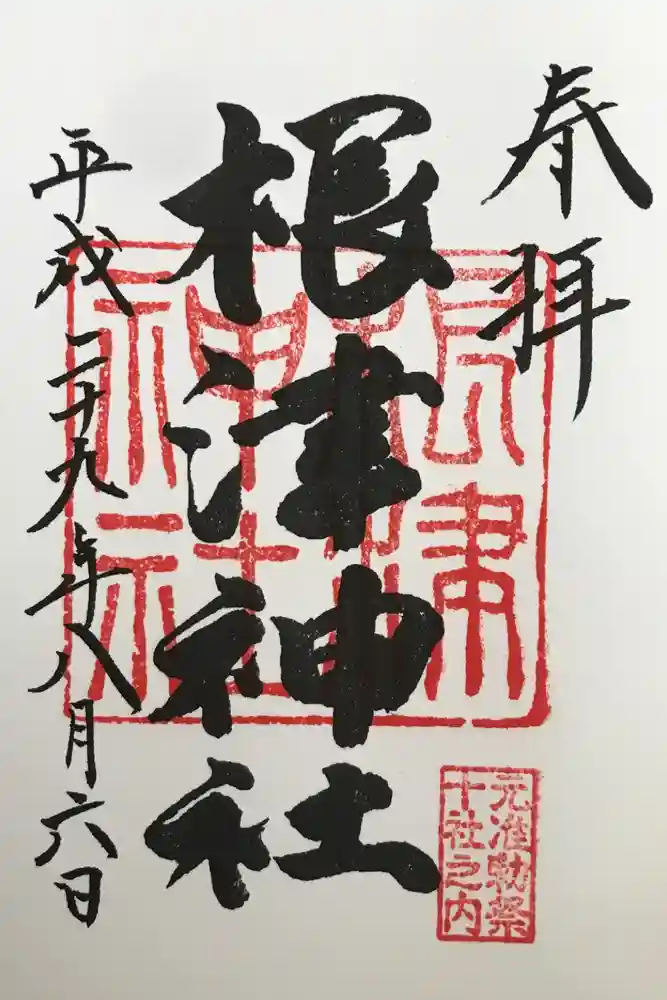 奉拝
根津神社
平成二十九年八月六日
根津
神社
元准勅祭
十社之内